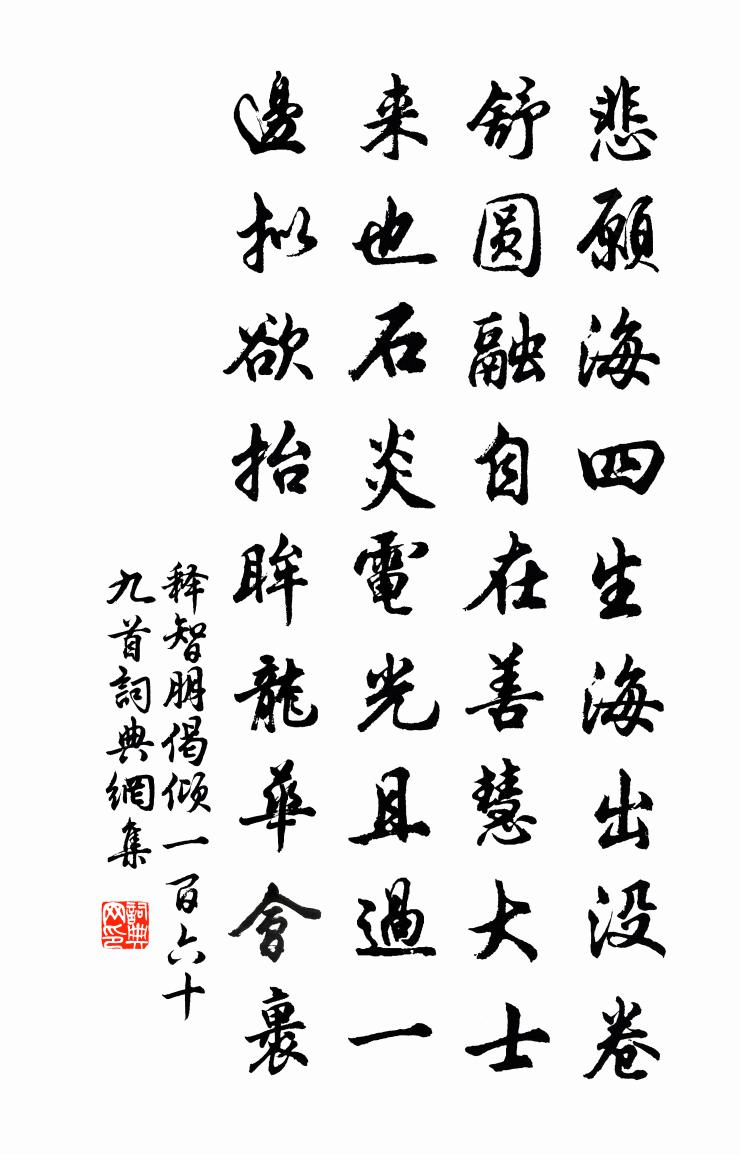 悲願海四生海出没卷
舒圆融自在善慧大士
来也石炎電光且過一
邊拟欲抬眸龍華會裹
释智朋偈倾一百六十
九首詞典網集
詞典
网印